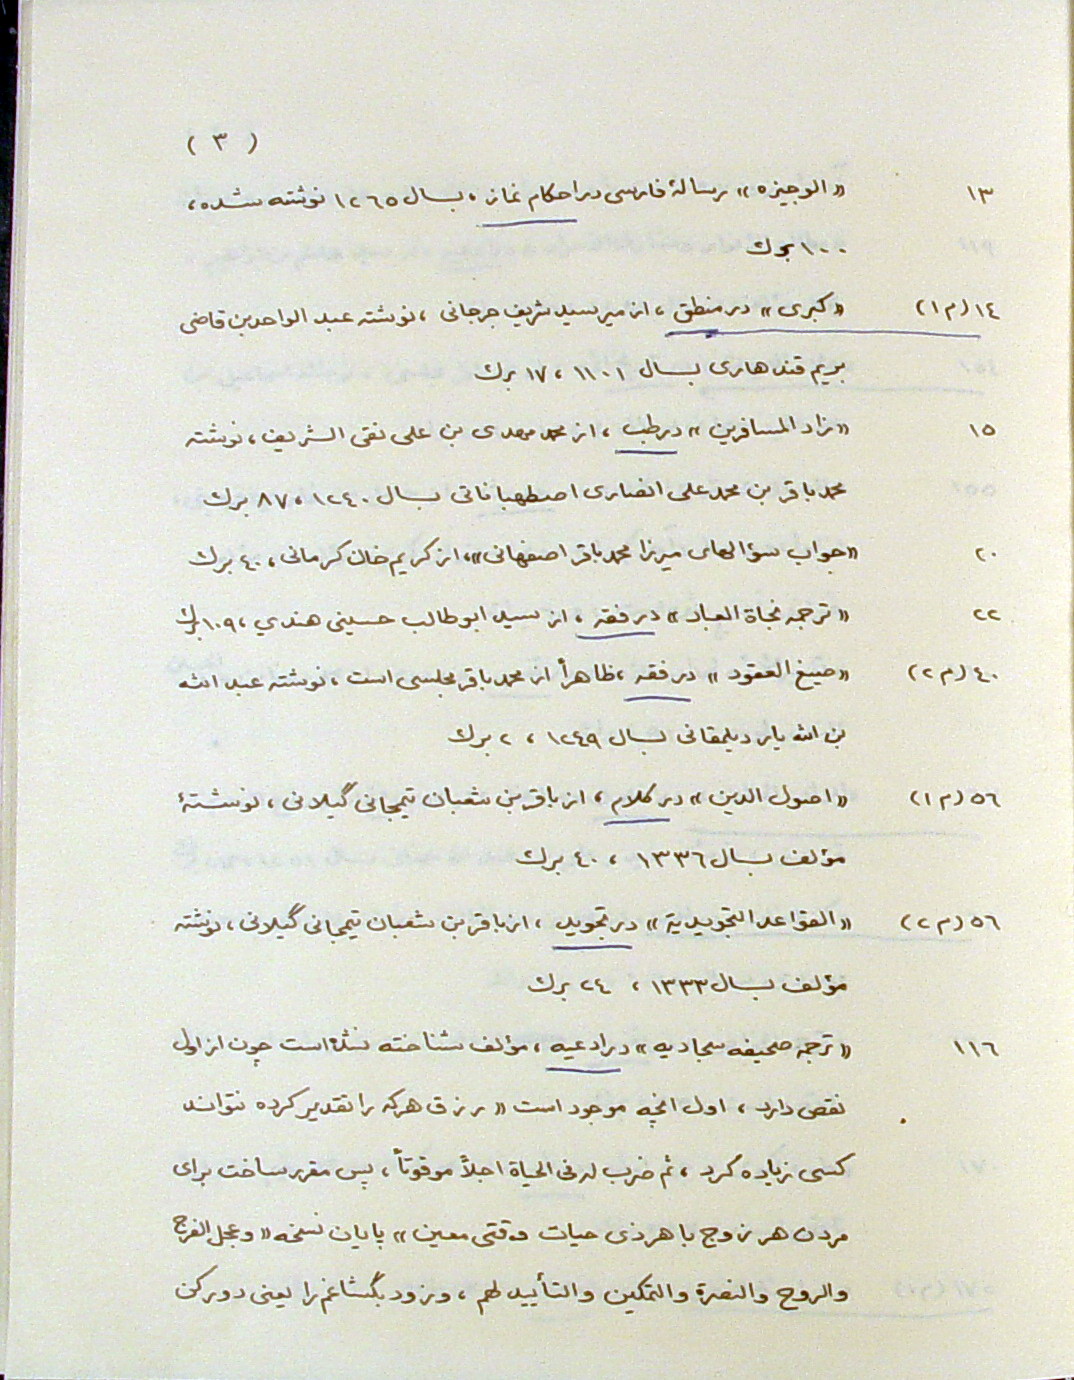 ( ٣ )
١٣ «الوجيزه» رسالهٔ فارسی در احکام نماز، بسال ١٢٦٥ نوشته شده،
١٠٠ برك
١٤ (م ١) «کبری» در منطق، از میر سید شریف جرجانی، نوشته عبد الواحد بن قاضی
بریم قندهاری بسال ١١٠١، ١٧ برك
١٥ «زاد المسافرین» در طب، از محمد مهدی بن علی نقی الشریف، نوشته
محمد باقر بن محمد علی انصاری اصطهباناتی بسال ١٢٤٠، ٨٧ برك
٢٠ «جواب سؤالهای میرزا محمد باقر اصفهانی»، از کریم خان کرمانی، ٤٠ برك
٢٢ «ترجمه نجاة العباد» در فقه، از سید ابو طالب حسینی هندی، ١٠٩ برك
٤٠ (م ٢) «صیغ العقود» در فقه، ظاهراً از محمد باقر مجلسی است، نوشته عبد الله
بن الله یار دیلمقانی بسال ١٢٤٩، ٢ برك
٥٦ (م ١) «اصول الدین» در کلام، از باقر بن شعبان تیمجانی گیلانی، نوشتهٔ
مؤلف بسال ١٣٣٦، ٤٠ برك
٥٦ (م ٢) «القواعد التجویدیة» در تجوید، از باقر بن شعبان تیمجانی گیلانی، نوشته
مؤلف بسال ١٣٣٣، ٢٤ برك
١١٦ «ترجمه صحیفه سجادیه» در ادعیه، مؤلف شناخته نشده است چون از اول
نقص دارد، اول انچه موجود است «رزق هرکه را تقدیر کرده نتواند
کسی زیاده کرد، ثم ضرب له فی الحیاة اجلاً موقوتاً، پس مقرر ساخت برای
مردن هر زوج با هر ذی حیات وقتی معین» پایان نسخه «وعجل الفرج
والروح والنصرة والتمکین والتأیید لهم، وزود بگشا غم را یعنی دور کن